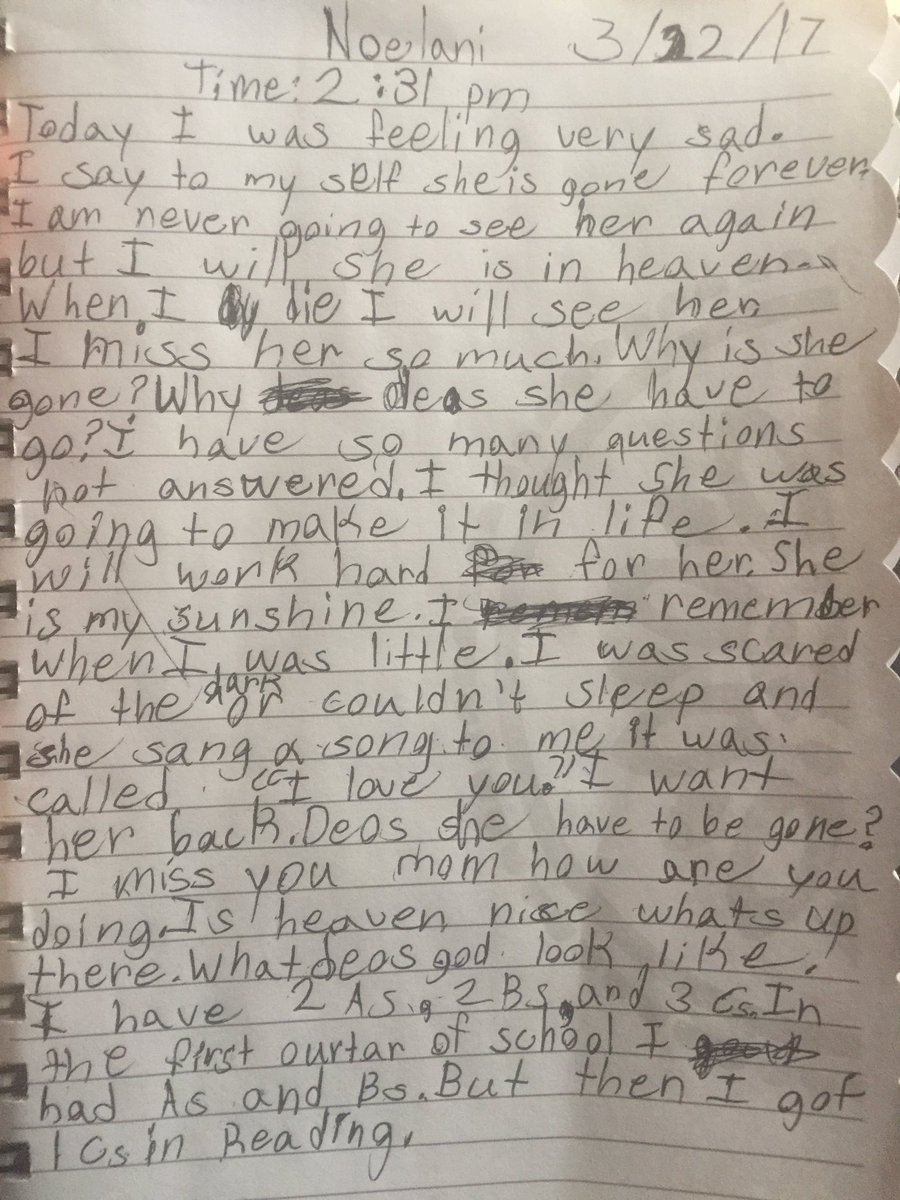 Noelani 3/22/17
Time: 2:31 pm
Today I was feeling very sad.
I say to my self she is gone forever.
I am never going to see her again
but I will she is in heaven.
When I die I will see her
I miss her so much. Why is she
gone? Why deas she have to
go? I have so many questions
not answered. I thought she was
going to make it in life. I
will work hard for her. She
is my sunshine. I remember
when I was little. I was scared
of the dark or couldn't sleep and
she sang a song to me it was
called "I love you." I want
her back. Deos she have to be gone?
I miss you mom how are you
doing. Is heaven nice whats up
there. What deos god look like.
I have 2 As, 2 Bs, and 3 Cs. In
the first ourtar of school I
had As and Bs. But then I got
1 Cs in Reading.